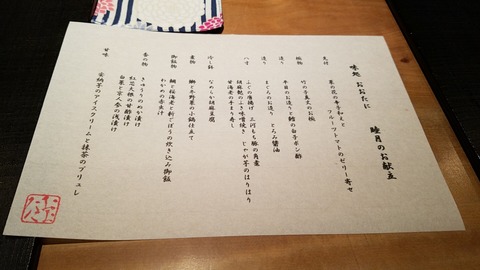 味処 おおたに
睦月のお献立
先付 菜の花の辛子和えと
フルーツトマトのゼリー寄せ
椀物 竹の子真丈のお椀
造り 平目のお造りと鱈の白子ポン酢
造り まぐろのお造り とろみ醤油
八寸 ふぐの唐揚げ 三河もち豚の角煮
胡麻麩のふき味噌焼き じゃが芋のはりはり
甘海老の手まり寿し
冷し鉢 なめらか胡麻豆腐
煮物 鰤と冬野菜の小鍋仕立て
御飯物 鯛と桜海老と新ごぼうの炊き込み御飯
わかめの赤出汁
香の物 きゅうりのぬか漬け
紅芯大根の甘酢漬け
白菜と京人参の浅漬け
甘味 安納芋のアイスクリームと抹茶のブリュレ